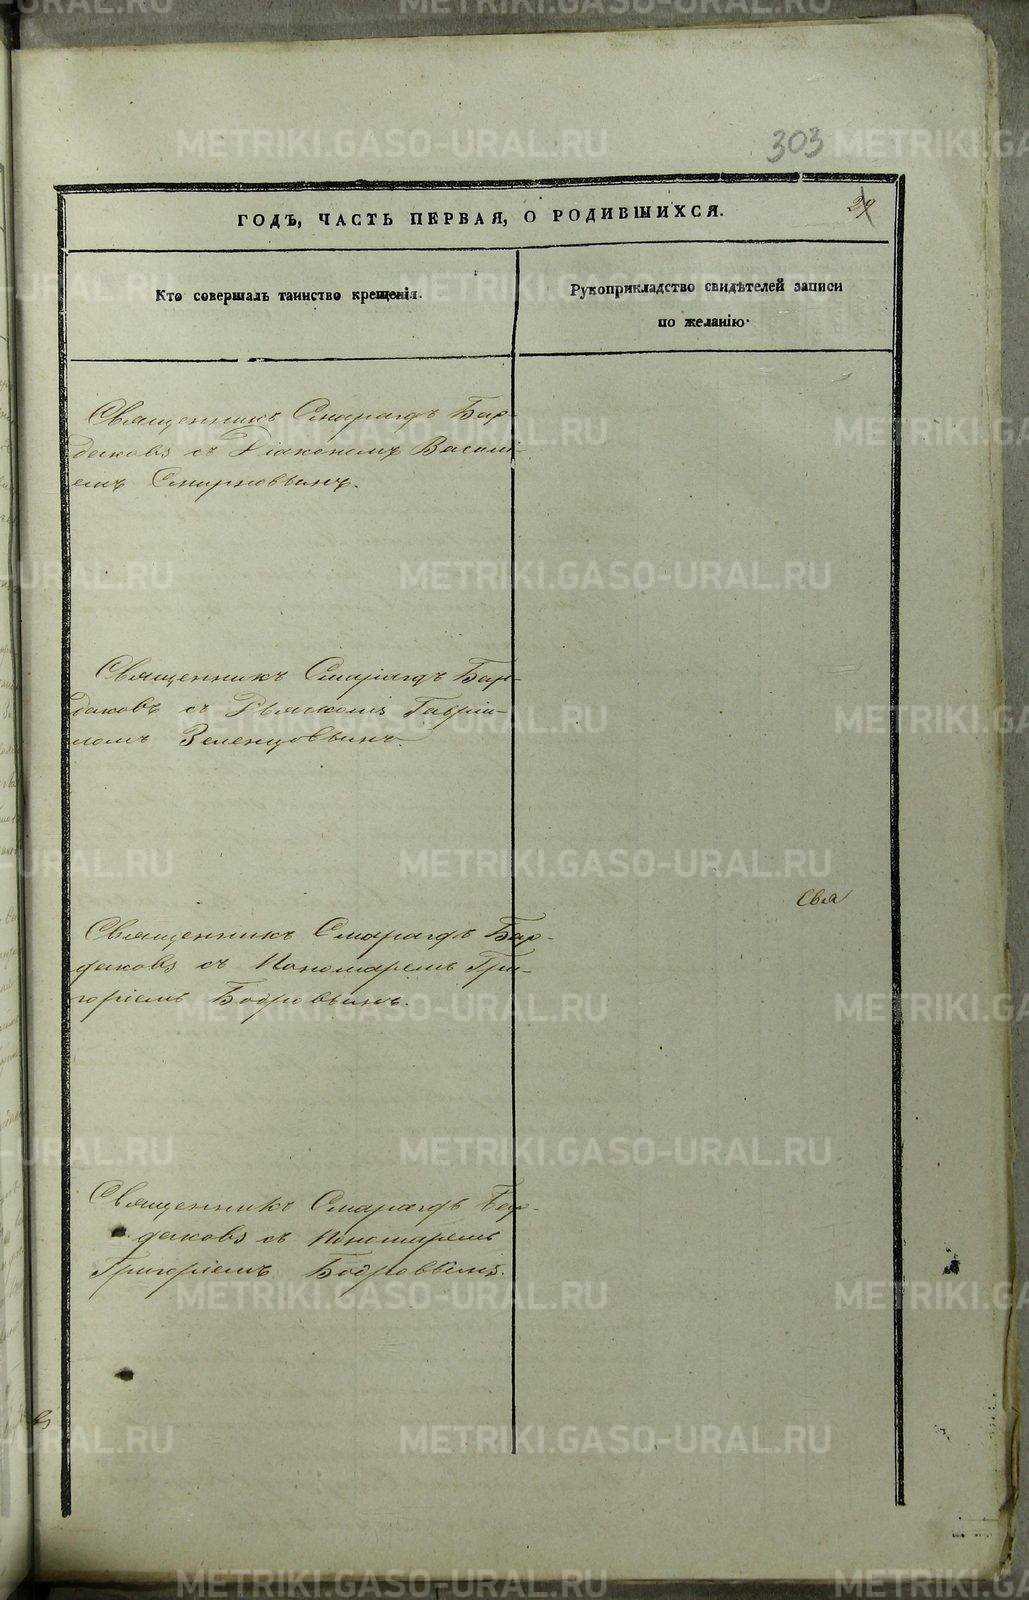 303
29
ГОДЪ, ЧАСТЬ ПЕРВАЯ, О РОДИВШИХСЯ.
Кто совершалъ таинство крещенія.
Рукоприкладство свидѣтелей записи
по желанію.
Священникъ Смарагдъ Бар-
даковъ съ Діакономъ Василі-
емъ Смирновымъ.
Священникъ Смарагдъ Бар-
даковъ съ Дьячкомъ Гавріи-
ломъ Зеленцовымъ.
Свя
Священникъ Смарагдъ Бар-
даковъ съ Пономаремъ Гри-
горіемъ Бодровымъ.
Священникъ Смарагдъ Бар-
даковъ съ Пономаремъ
Григоріемъ Бодровымъ.
METRIKI.GASO-URAL.RU